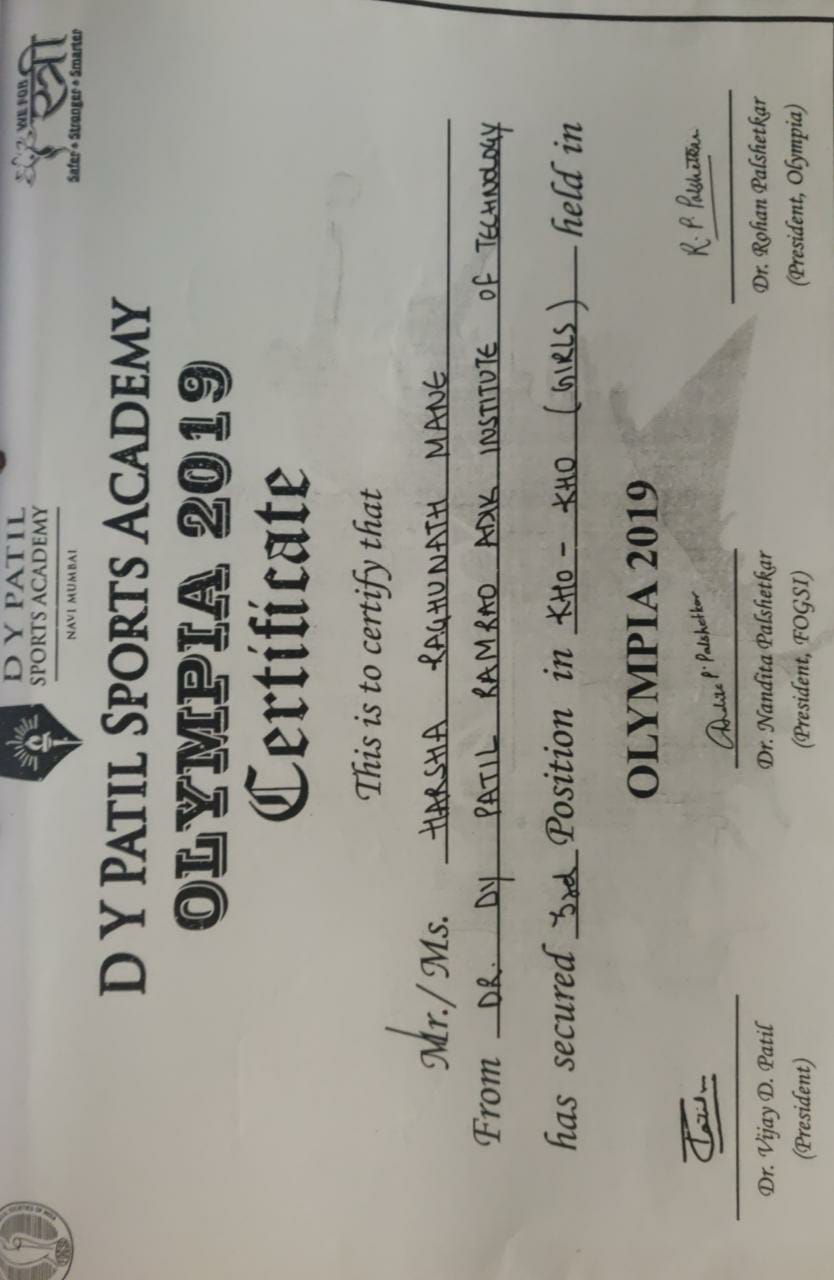 D Y PATIL
SPORTS ACADEMY
NAVI MUMBAI
WE FOR
स्त्री
Safer • Stronger • Smarter
D Y PATIL SPORTS ACADEMY
OLYMPIA 2019
Certificate
This is to certify that
Mr./ Ms. HARSHA RAGHUNATH MANE
From DR. DY PATIL RAMRAO ADIK INSTITUTE OF TECHNOLOGY
has secured 3rd Position in KHO - KHO (GIRLS) held in
OLYMPIA 2019
R. P. Palshetkar
Dr. Vijay D. Patil
(President)
Dr. Nandita Palshetkar
(President, FOGSI)
Dr. Rohan Palshetkar
(President, Olympia)